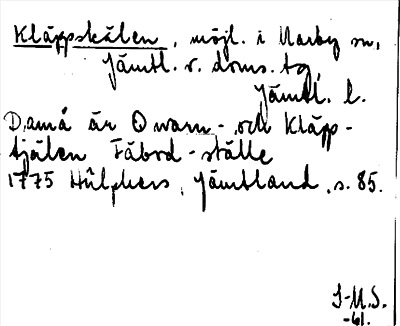 Kläppskälen, möjl. i Marby sn,
Jämtl. v. doms. tg,
Jämtl. l.
Damå är Qwarn- och Kläpp-
tjälen Fäbod-ställe
1775 Hülphers, Jämtland, s. 85.
J-M.S.
-61.